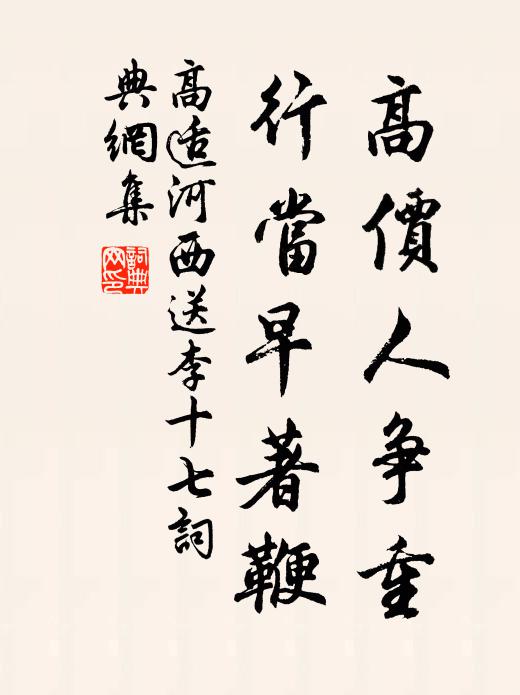 高價人争重
行當早著鞭
高适河西送李十七詞
典網集
詞典
网印